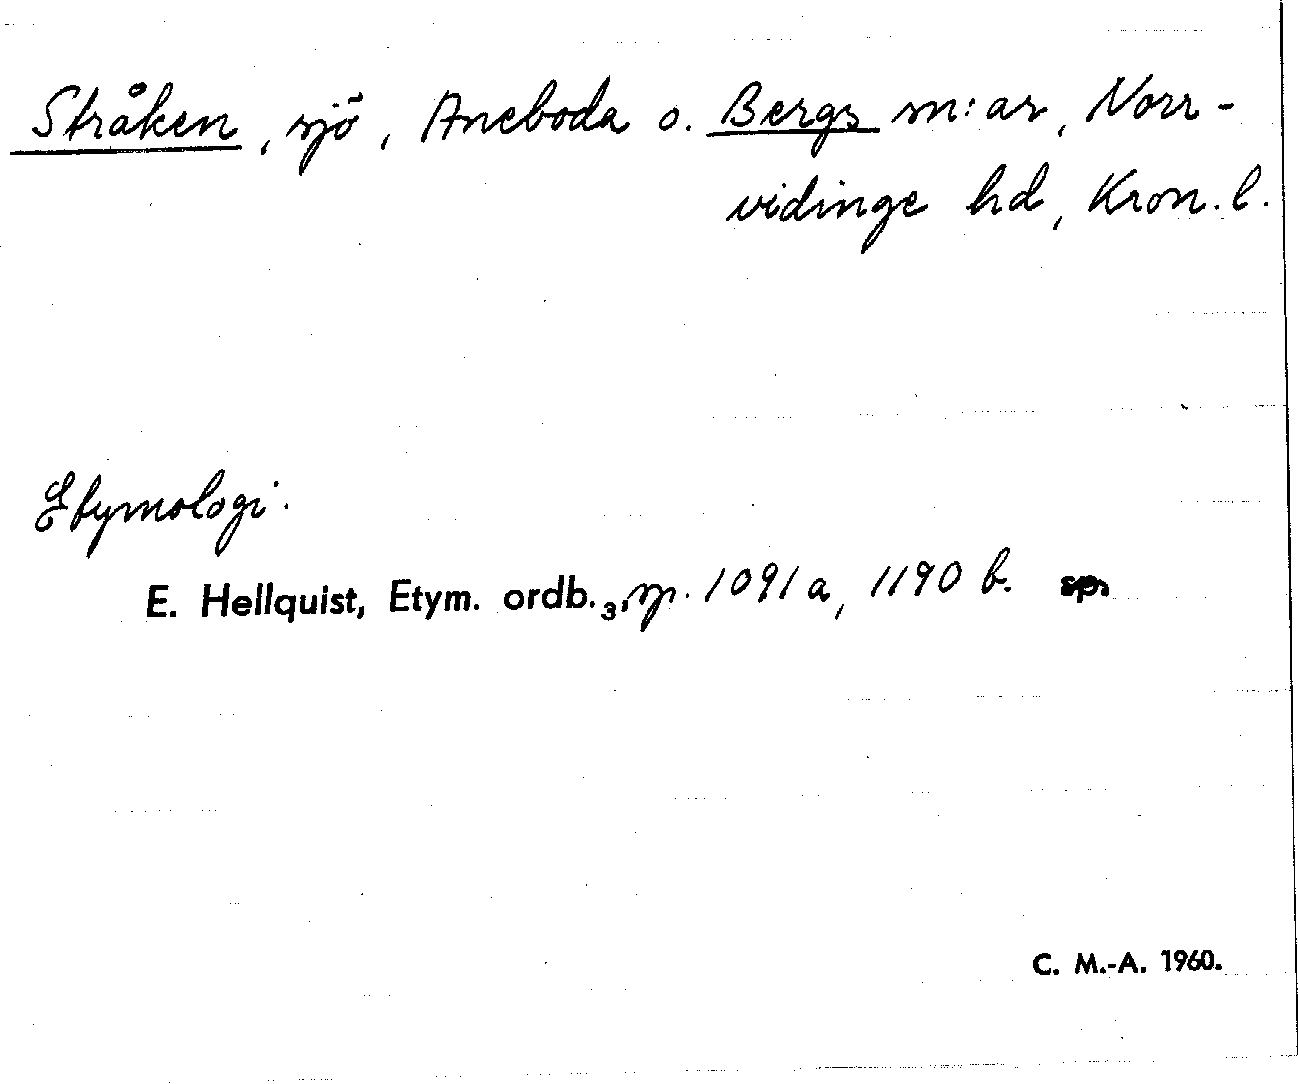 Stråken, sjö, Aneboda o. Bergs sn:ar, Norr-
vidinge hd, Kron. l.
Etymologi.
E. Hellquist, Etym. ordb.3, sp. 1091 a, 1190 b. sp.
C. M.-A. 1960.